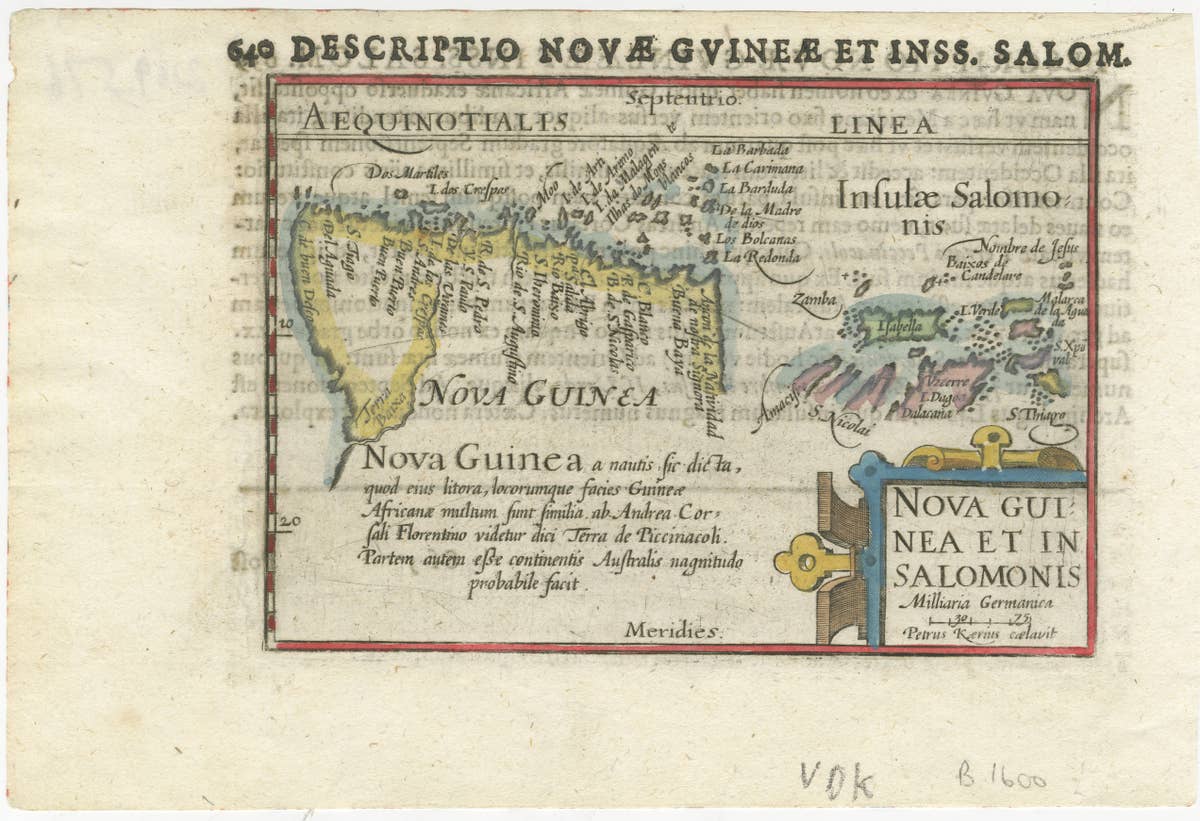 640 DESCRIPTIO NOVÆ GVINEÆ ET INSS. SALOM.
Septentrio.
AEQUINOTIALIS LINEA
Dos Martiles
I. dos Crespos
Moo
I. de Arti
I. de Arimo
I. da Malagen
Ilhas do Mons
Viancos
La Barbada
La Carimana
La Barduda
De la Madre
de dios
Los Bolcanas
La Redonda
Insulæ Salomo-
nis
Nombre de Jesus
Baixos de
Candelare
Zamba
Isabella
I. Verde
Malarca
de la Agua
da
S. Xpo
val
Amacise
S. Nicolai
I. Dagoa
Dalacana
S. Thiago
C. de buen Deseo
Del Aguada
S. Tiago
Buen Puerto
Buen Puerto
S. Andres
De las Virgines
V. S. Paulo
R. de S. Pedro
Rio de S. Augustino
S. Ihieronimo
Rio Baixo
P. Salida
C. Abrigo
B. de S. Nicolas
R. de Gasparico
C. Blanco
Buena Baya
Ancon de la Natividad
de nostra Signora
Terra
Baixa
10
NOVA GUINEA
Nova Guinea a nautis sic dicta,
quod eius litora, locorumque facies Guineæ
Africanæ multum sunt similia. ab Andrea Cor-
sali Florentino videtur dici Terra de Piccinacoli.
Partem autem esse continentis Australis nagnitudo
probabile facit.
20
Meridies.
NOVA GUI-
NEA ET IN
SALOMONIS
Milliaria Germanica
30 75
Petrus Kærius cælavit
VDK B 1600